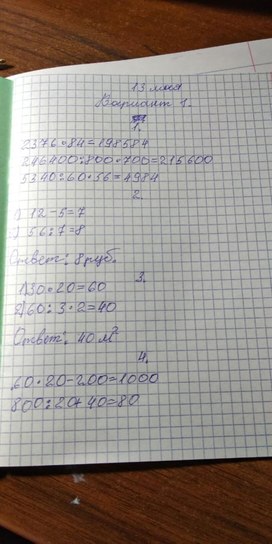 13 мая
Вариант 1.
1.
2376·84=198584
246400:800·700=215600
5340:60·56=4984
2.
1) 12-5=7
2) 56:7=8
Ответ: 8 руб.
3.
1)30·20=60
2)60:3·2=40
Ответ: 40 м²
4.
60·20-200=1000
800:20+40=80